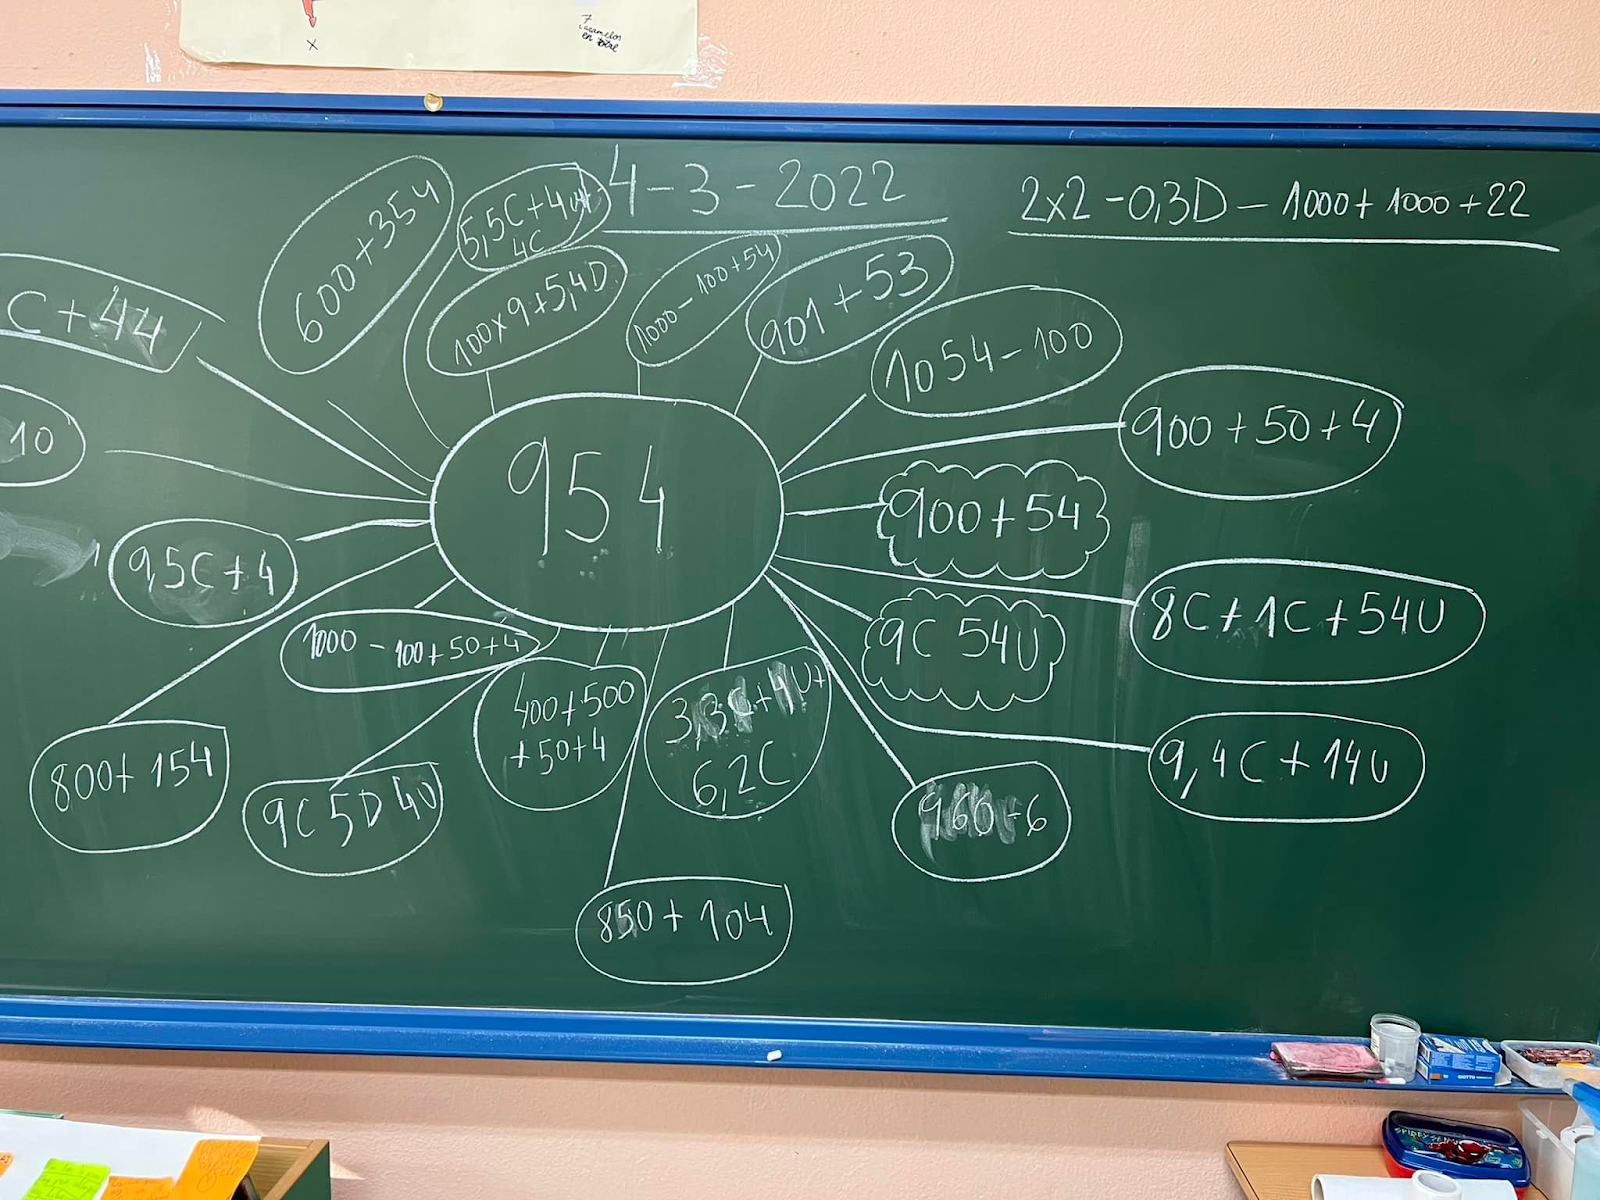 7
caramelos
en total
x
4-3-2022
2x2-0,3D-1000+1000+22
600+354
5,5C+4U+
4C
100x9+5,4D
1000-100+54
901+53
C+44
1054-100
10
900+50+4
954
900+54
9,5C+4
8C+1C+54U
1000-100+50+4
9C 54U
400+500
+50+4
3,3C+4U+
6,2C
800+154
9C 5D 4U
9,4C+14U
960-6
850+104
GIOTTO